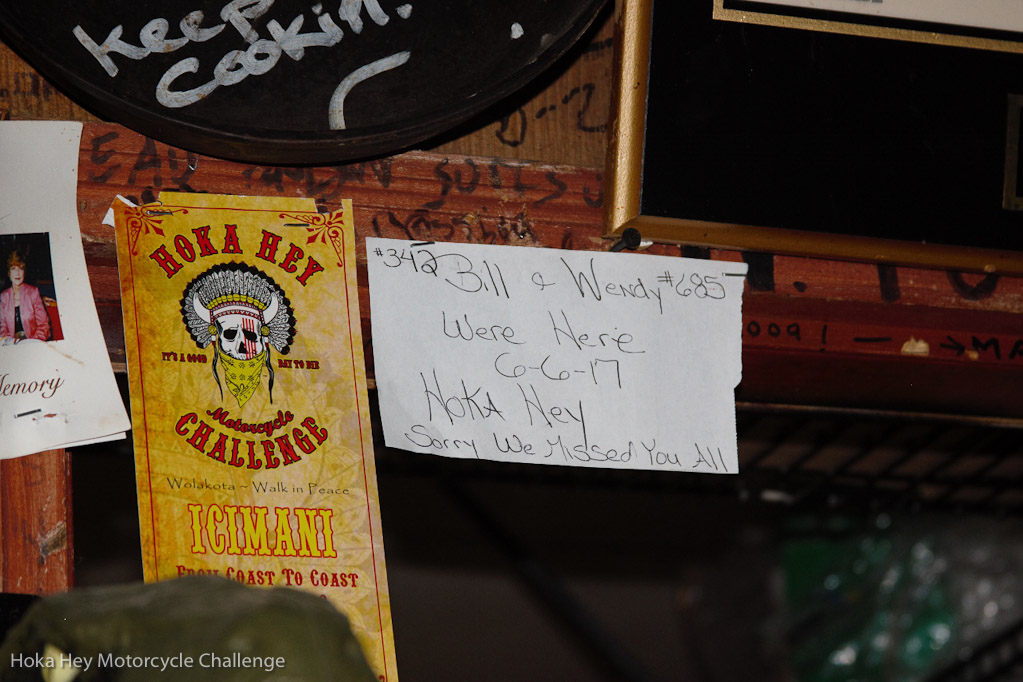 Keep
Cookin.
#342 Bill & Wendy #685
Were Here
6-6-17
HOKA Hey
Sorry We Missed You All
HOKA HEY
IT'S A GOOD DAY TO DIE
Motorcycle
CHALLENGE
Wolakota ~ Walk in Peace
ICIMANI
FROM COAST TO COAST
Memory
0091
Hoka Hey Motorcycle Challenge